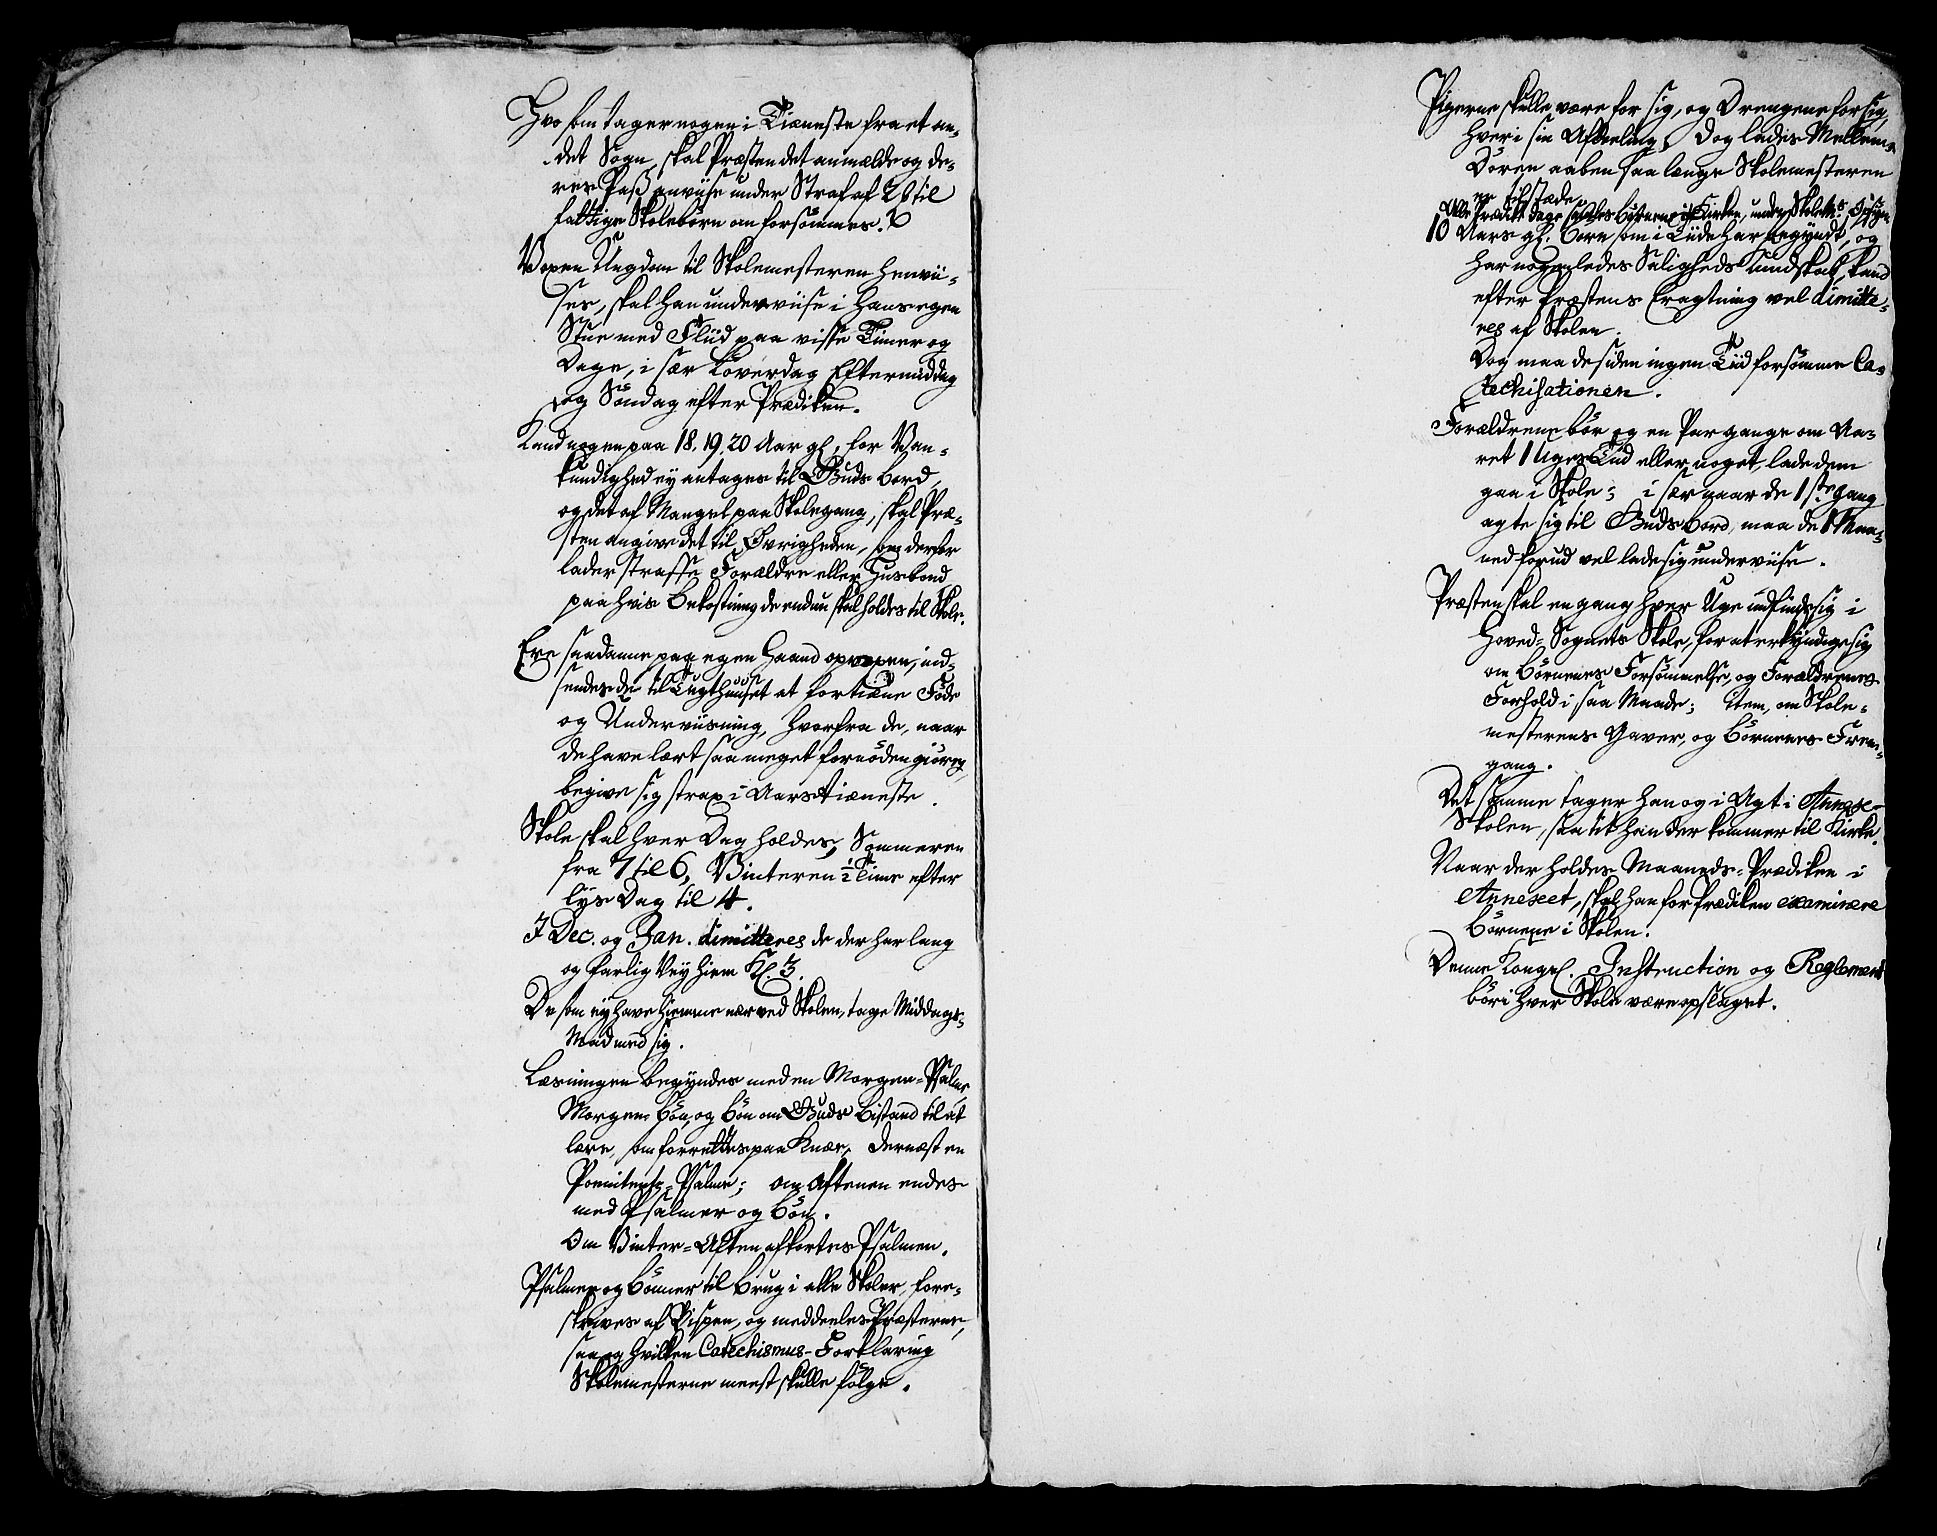 Hvo som tager nogen i Tieneste fra et an-
det Sogn, skal Præsten det anmælde og de-
res Pass anviise under Straf af 2 til
fattige Skolebørn om forsømmes.
Voxen Ungdom til Skolemesteren henvii-
ses, skal han underviise i hans egen
Stue med Fliid paa visse Timer og
Dage, i sær Løverdag Eftermiddag
og Søndag efter Prædiken.
Kand nogen paa 18, 19, 20 Aar gl. for Van-
kundighed ey antages til Guds bord,
og det af Mangel paa Skolegang, skal Præ-
sten angive det til Øvrigheden, som derfor
lader straffe Forældre eller Husbond
paa hvis bekostning de endnu skal holdes til Skole.
Ere saadanne paa egen Haand opvoxen, ind-
sendes de til Tugthuuset at fortiene Føde
og Underviisning, hvorfra de, naar
de have lært saa meget fornøden giøres,
begive sig strax i Aars tieneste.
Skole skal hver Dag holdes, Sommeren
fra 7 til 6, Vinteren ½ Time efter
lys Dag til 4.
I Dec. og Jan. dimitteres de der har lang
og farlig Vey hiem Kl. 3.
De som ey have hiemme nær ved Skolen, tage Middags-
Mad med sig.
Læsningen begyndes med en Morgen-Psalme
Morgen bøn, og bøn om Guds bistand til at
lære, som forrettes paa Knæe, dernæst en
Poenitentz-Psalme; om Aftenen endes
med Psalmer og bøn.
Om Vinter-Aften afkortes Psalmen.
Psalmer og bønner til brug i alle Skoler, fore-
skrives af Bispen, og meddeeles Præsterne,
saa og hvilken Catechismus-Forklaring
Skolemesterne meest skulle følge.
Pigerne skulle være for sig, og Drengene for sig,
hver i sin Afdeeling, dog lades Mellem-
Døren aaben saa længe Skolemesteren
er tilstæde.
Alle Prædike dage samles børnene i Kirken, under Skolem.s Opsyn
10 Aars gl. børn som i Tiide har begyndt, og
har nogenledes Saligheds Kundskab, kand
efter Præstens Eragtning vel dimitte-
res af Skolen.
Dog maa de siden ingen Tiid forsømme Ca-
techisationen.
Forældrene bør og en Par gange om Aa-
ret 1 Uges Tiid eller noget, lade dem
gaa i Skole; i sær naar de 1ste gang
agte sig til Guds bord, maa de 1 Maa-
ned forud vel lade sig underviise.
Præsten skal en gang hver Uge indfinde sig i
Hoved-Sognets Skole, for at erkyndige sig
om børnenes Forsømmelse, og Forældrenes
Forhold i saa Maade; item, om Skole-
mesterens Gaver, og børnenes Frem-
gang.
Det samme tager han og i Agt i Annexe-
Skolen, saa tit han der kommer til Kirke.
Naar der holdes Maaneds-Prædiken i
Annexet, skal han for Prædiken examinere
børnene i Skolen.
Denne Kongel. Instruction og Reglement
bør i hver Skole være opslaget.